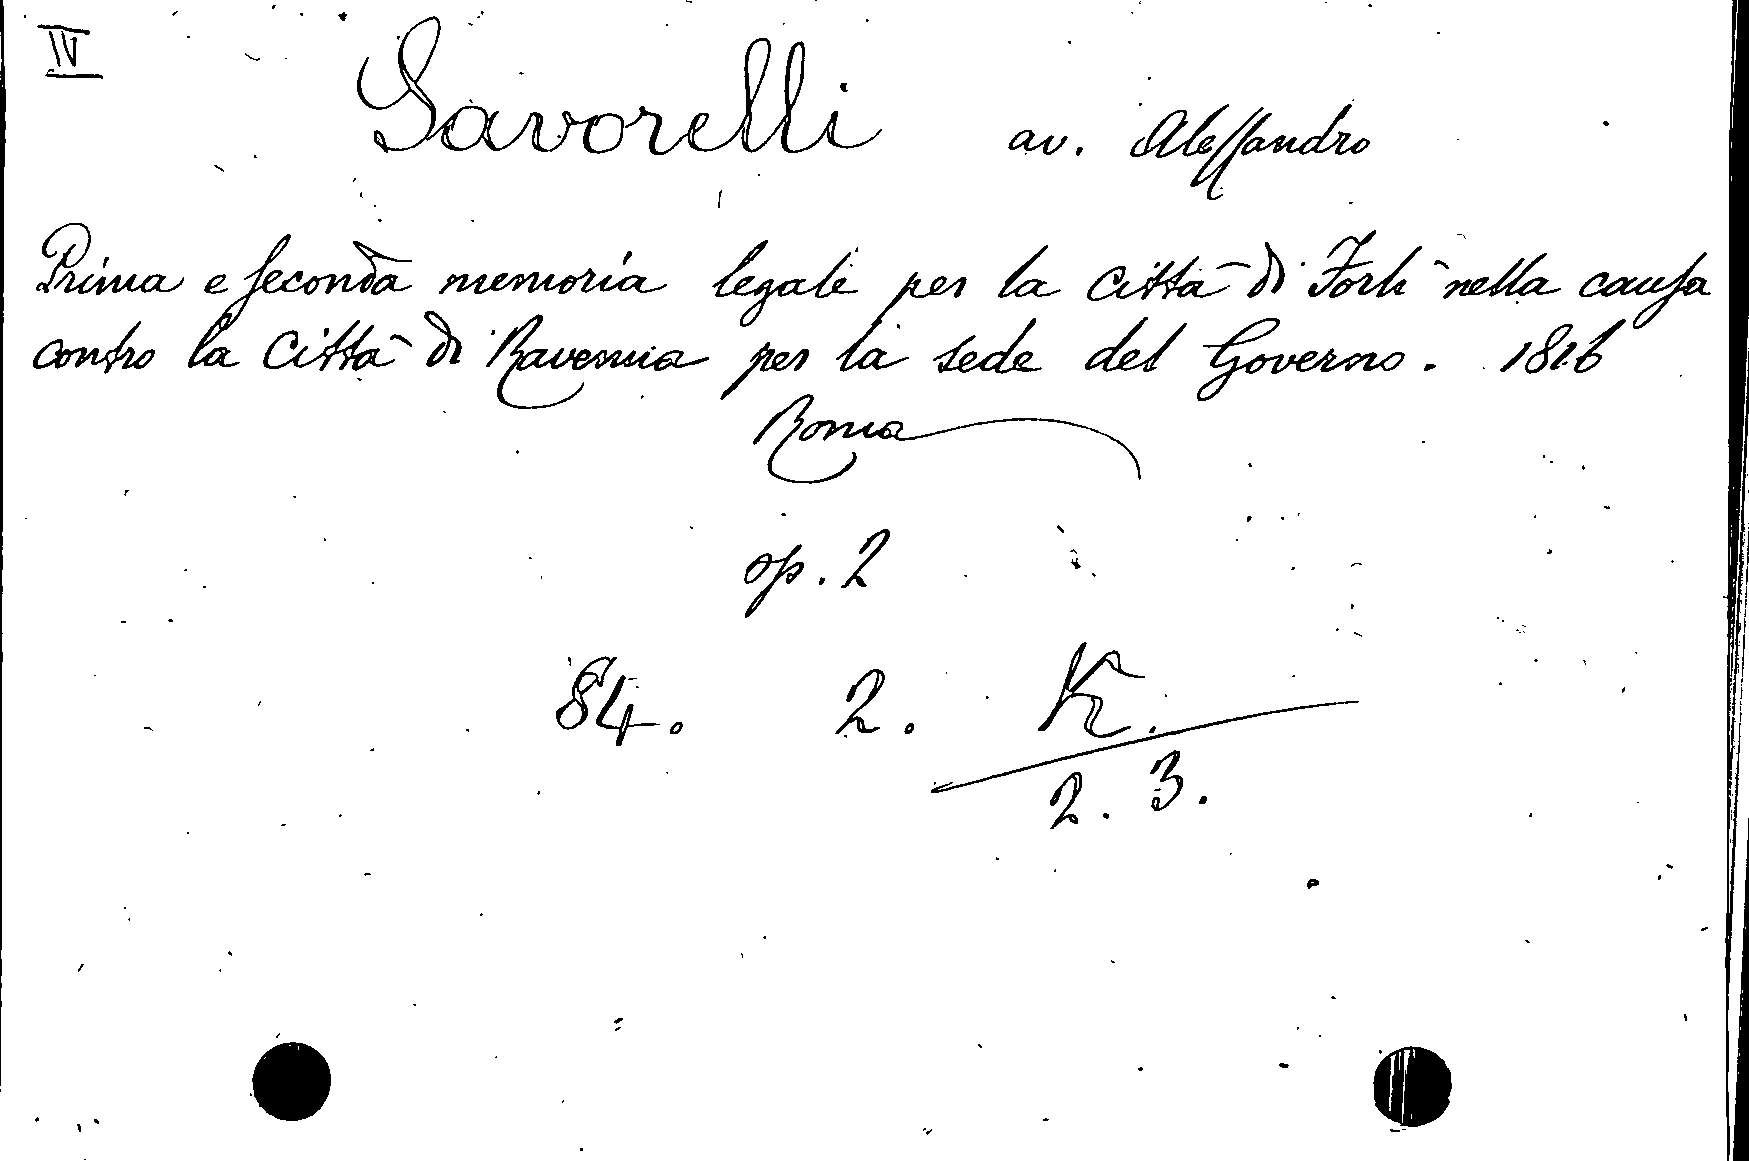 IV
Savorelli av. Alessandro
Prima e seconda memoria legale per la città di Forlì nella causa
contro la Città di Ravenna per la sede del Governo. 1816
Roma
op. 2
84. 2. K.
2. 3.